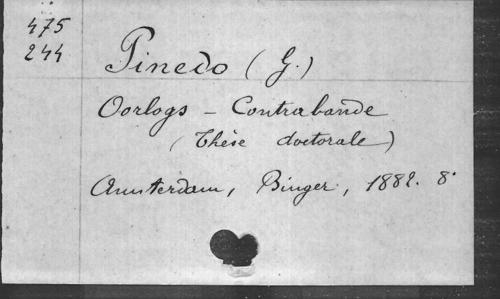 475
244
Pinedo (G.)
Oorlogs - Contrabande
(Thèse doctorale)
Amsterdam, Binger, 1882. 8°